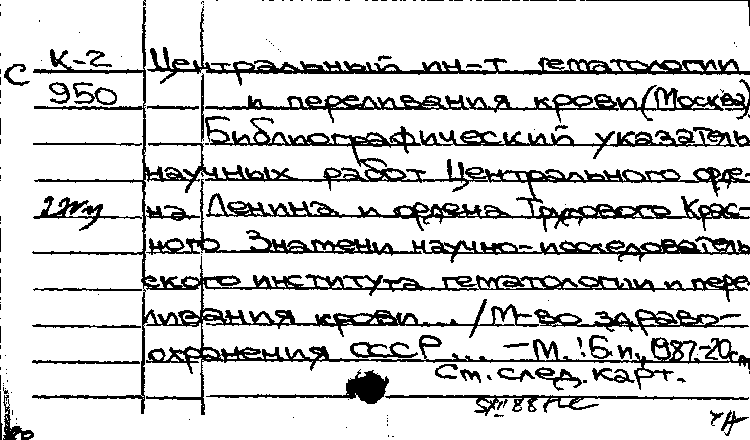 К-2 Центральный ин-т гематологии
С 950 и переливания крови (Москва)
Библиографический указатель
научных работ Центрального орде-
на Ленина и ордена Трудового Крас-
ного Знамени научно-исследователь
ского института гематологии и пере
ливания крови... / М-во здраво-
охранения СССР... – М.: Б.и., 1987.-20см
См. след. карт.